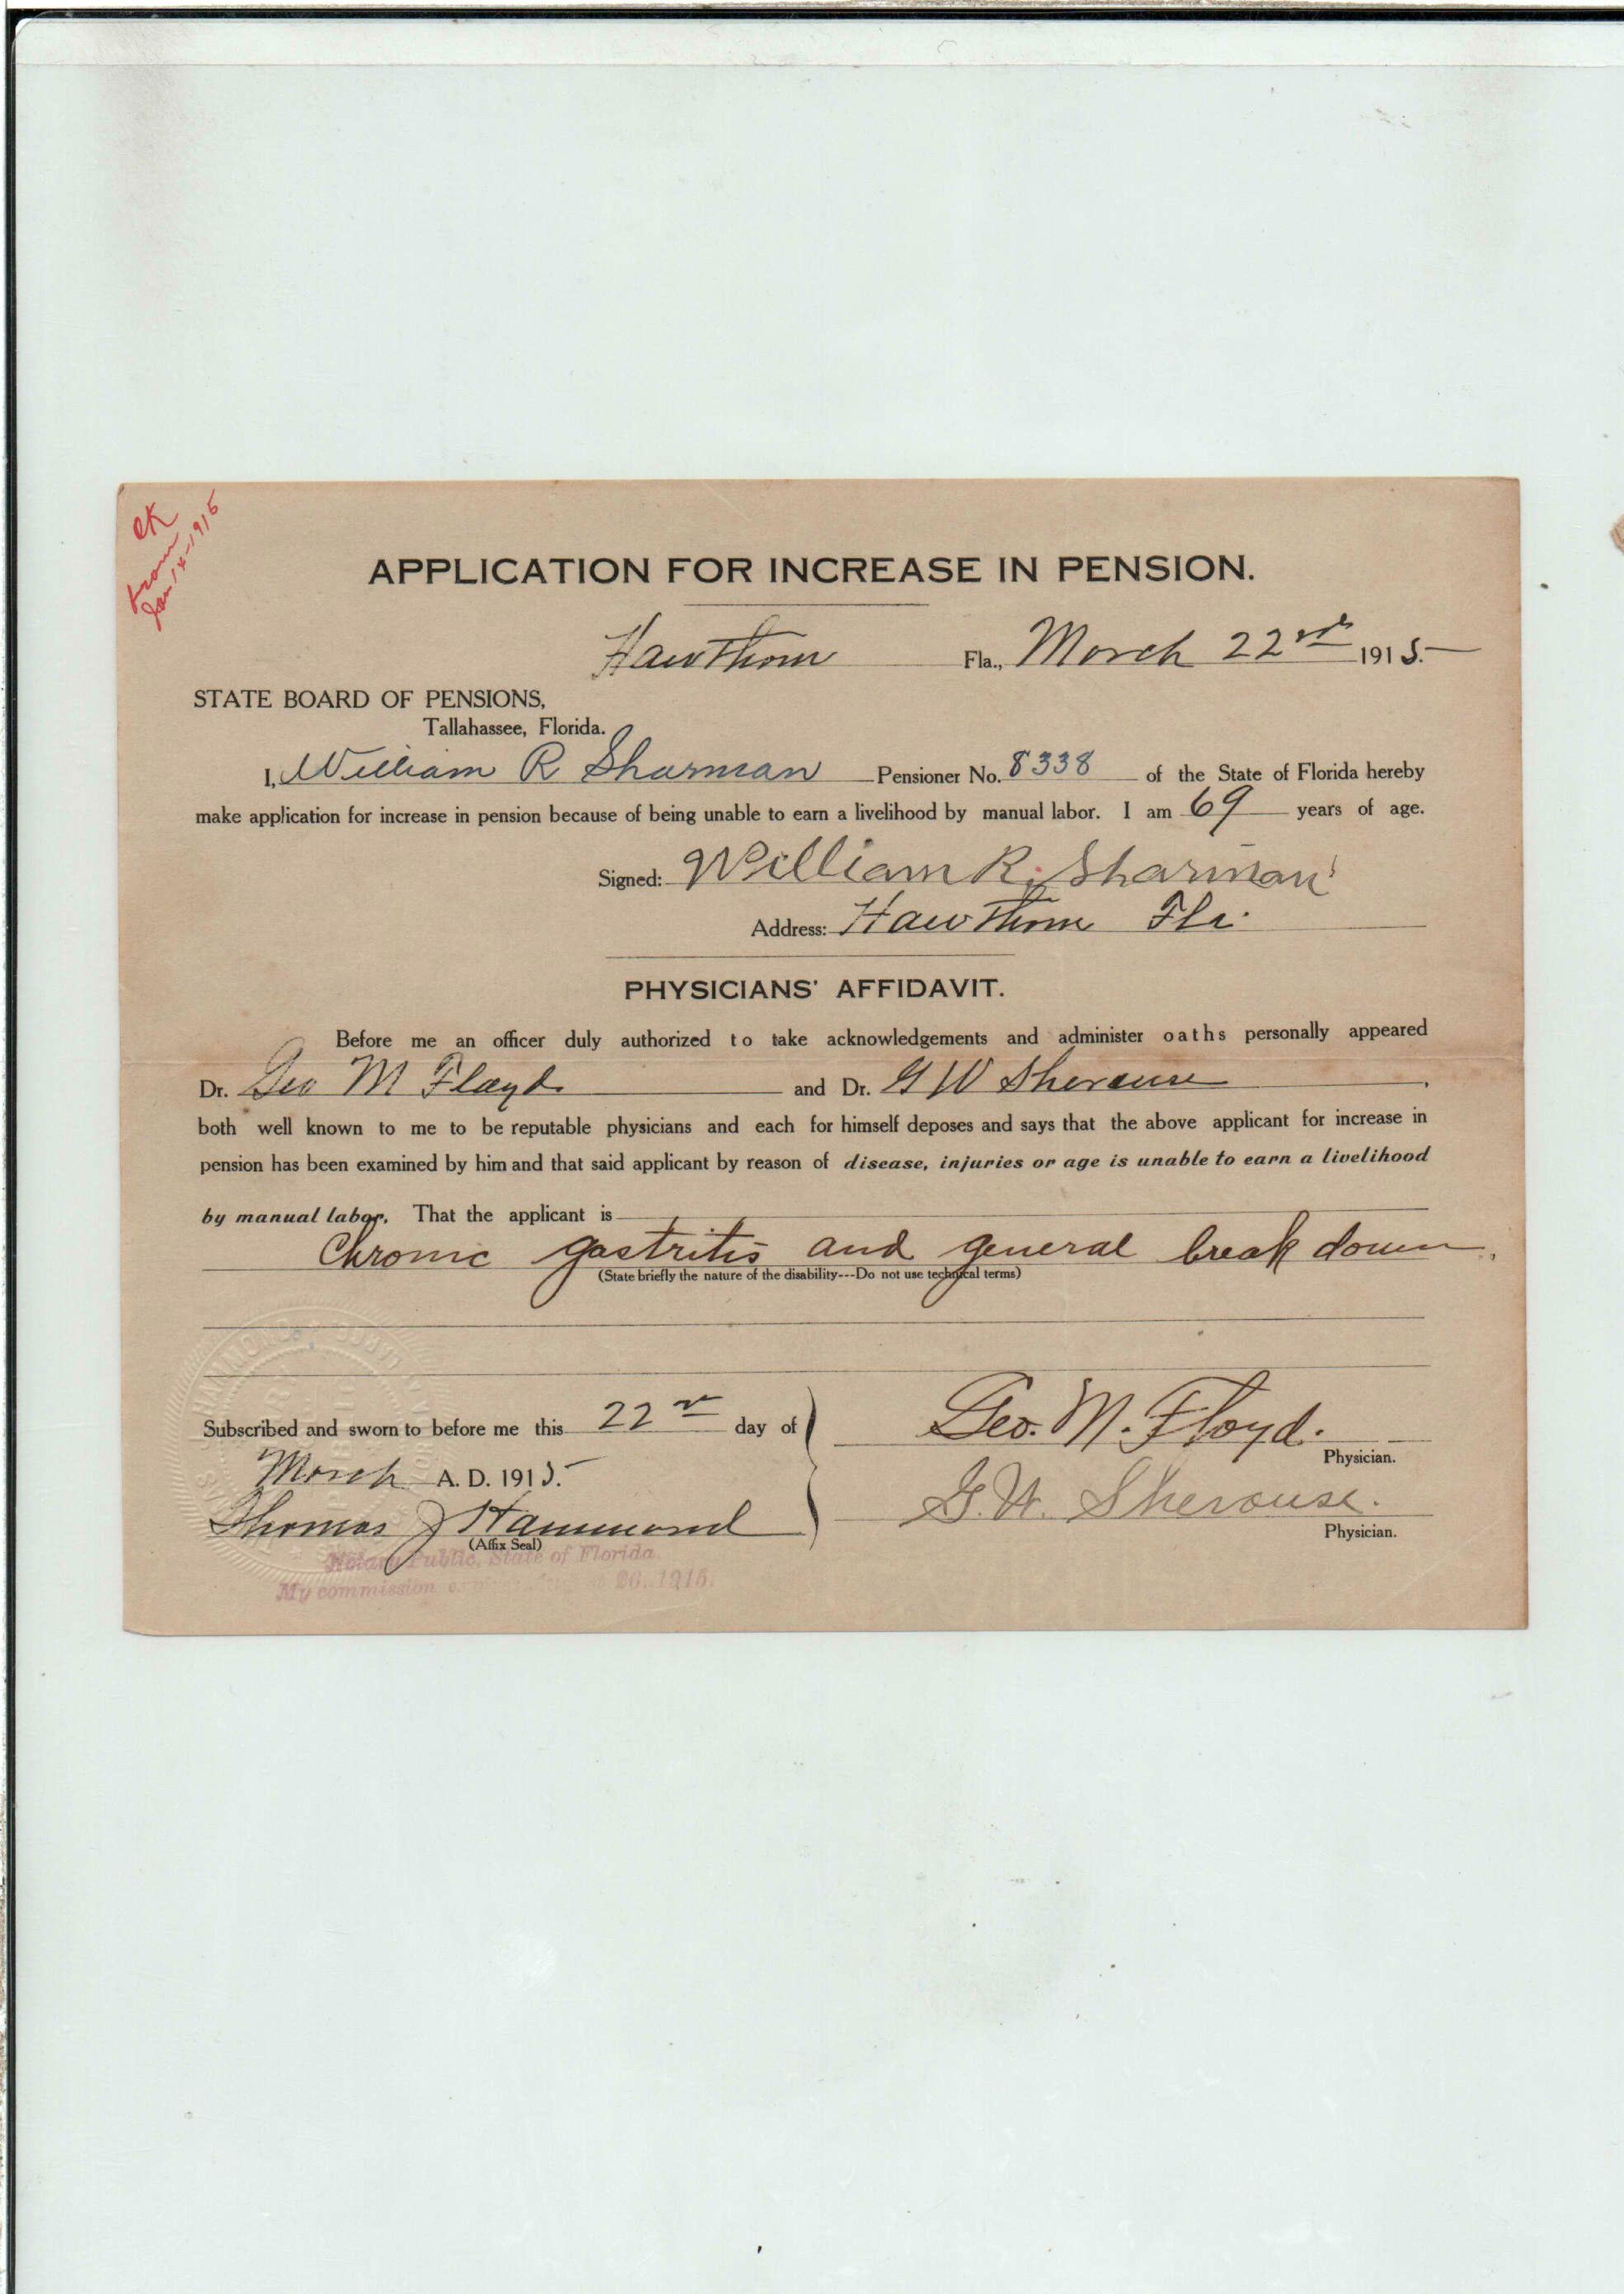 OK
from
Jan 1st-1915
APPLICATION FOR INCREASE IN PENSION.
Hawthorn Fla., March 22nd 1915.
STATE BOARD OF PENSIONS,
Tallahassee, Florida.
I, William R Sharman Pensioner No. 8338 of the State of Florida hereby
make application for increase in pension because of being unable to earn a livelihood by manual labor. I am 69 years of age.
Signed: William R. Sharman
Address: Hawthorn Fla.
PHYSICIANS' AFFIDAVIT.
Before me an officer duly authorized to take acknowledgements and administer oaths personally appeared
Dr. Geo M Floyd and Dr. G W Sherouse,
both well known to me to be reputable physicians and each for himself deposes and says that the above applicant for increase in
pension has been examined by him and that said applicant by reason of disease, injuries or age is unable to earn a livelihood
by manual labor. That the applicant is
Chronic gastritis and general break down.
(State briefly the nature of the disability---Do not use technical terms)
Subscribed and sworn to before me this 22nd day of
March A. D. 1915.
Thomas J Hammond
(Affix Seal)
Notary Public, State of Florida.
My commission expires 26, 1915.
Geo. M. Floyd.
Physician.
G. W. Sherouse.
Physician.